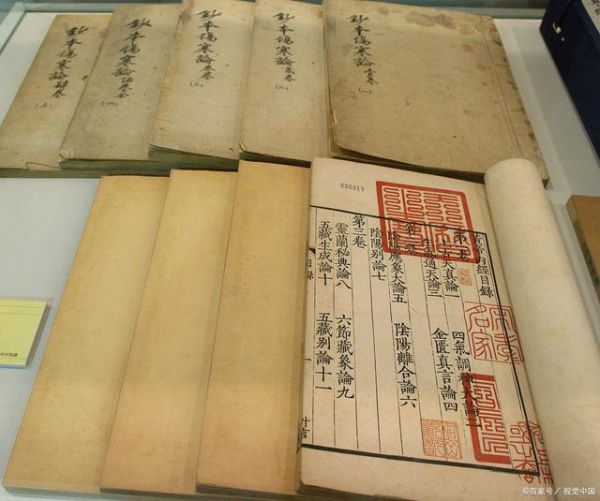 鈔本傷寒論壹卷
(一)
鈔本傷寒論
(二)
鈔本傷寒論
(三)
鈔本傷寒論
鈔本傷寒論
黃帝內經目錄
第一卷
上古天真論一 四氣調神大論二
生氣通天論三 金匱真言論四
第二卷
陰陽應象大論五 陰陽離合論六
陰陽別論七
第三卷
靈蘭秘典論八 六節藏象論九
五藏生成論十 五藏別論十一
目錄
©百家号／视觉中国